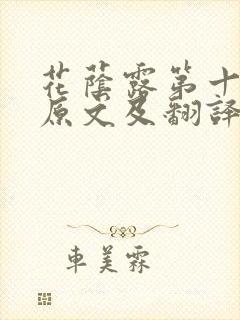 花蔭露第十
原文及翻譯
車美霖